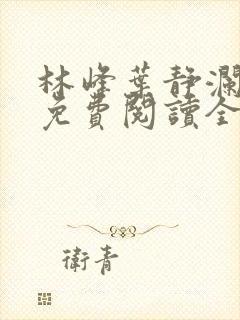 林峰葉静瀾
免費閱讀全
衛青